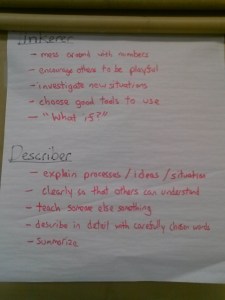 Tinkerer
- mess around with numbers
- encourage others to be playful
- investigate new situations
- choose good tools to use
- "What if?"
Describer
- explain processes/ideas/situation
- clearly so that others can understand
- teach someone else something
- describe in detail with carefully chosen words
- summarize